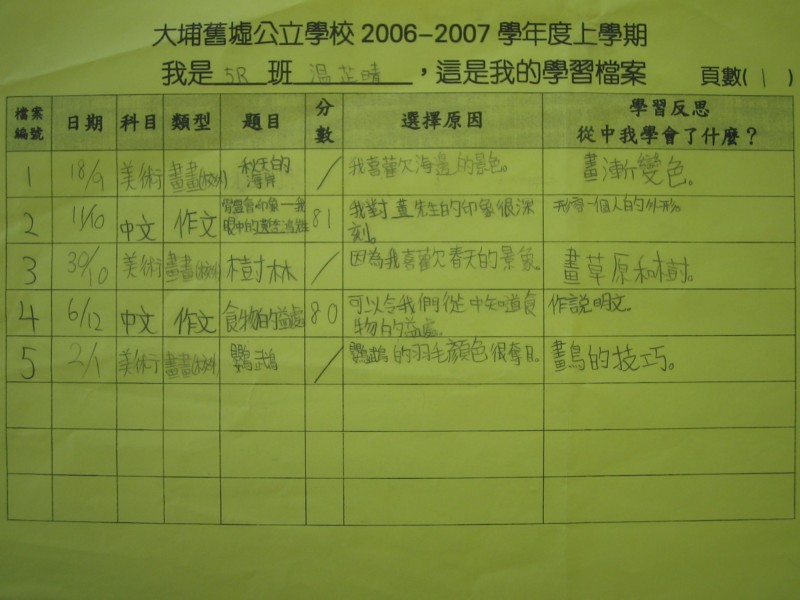 大埔舊墟公立學校 2006-2007 學年度上學期
我是 5R 班 溫芷晴 ，這是我的學習檔案 頁數( 1 )
檔案編號 日期 科目 類型 題目 分數 選擇原因 學習反思 從中我學會了什麼？
1 18/9 美術 畫畫 秋天的海岸 / 我喜歡海邊的景色。 畫漸變色。
2 11/10 中文 作文 印象一我眼中的 81 我對 先生的印象很深刻。 形容一個人的外形。
3 30/10 美術 畫畫 樹林 / 因為我喜歡春天的景象。 畫草原和樹。
4 6/12 中文 作文 食物的益處 80 可以令我們從中知道食物的益處。 作說明文。
5 2/1 美術 畫畫 鸚鵡 / 鸚鵡的羽毛顏色很奪目。 畫鳥的技巧。